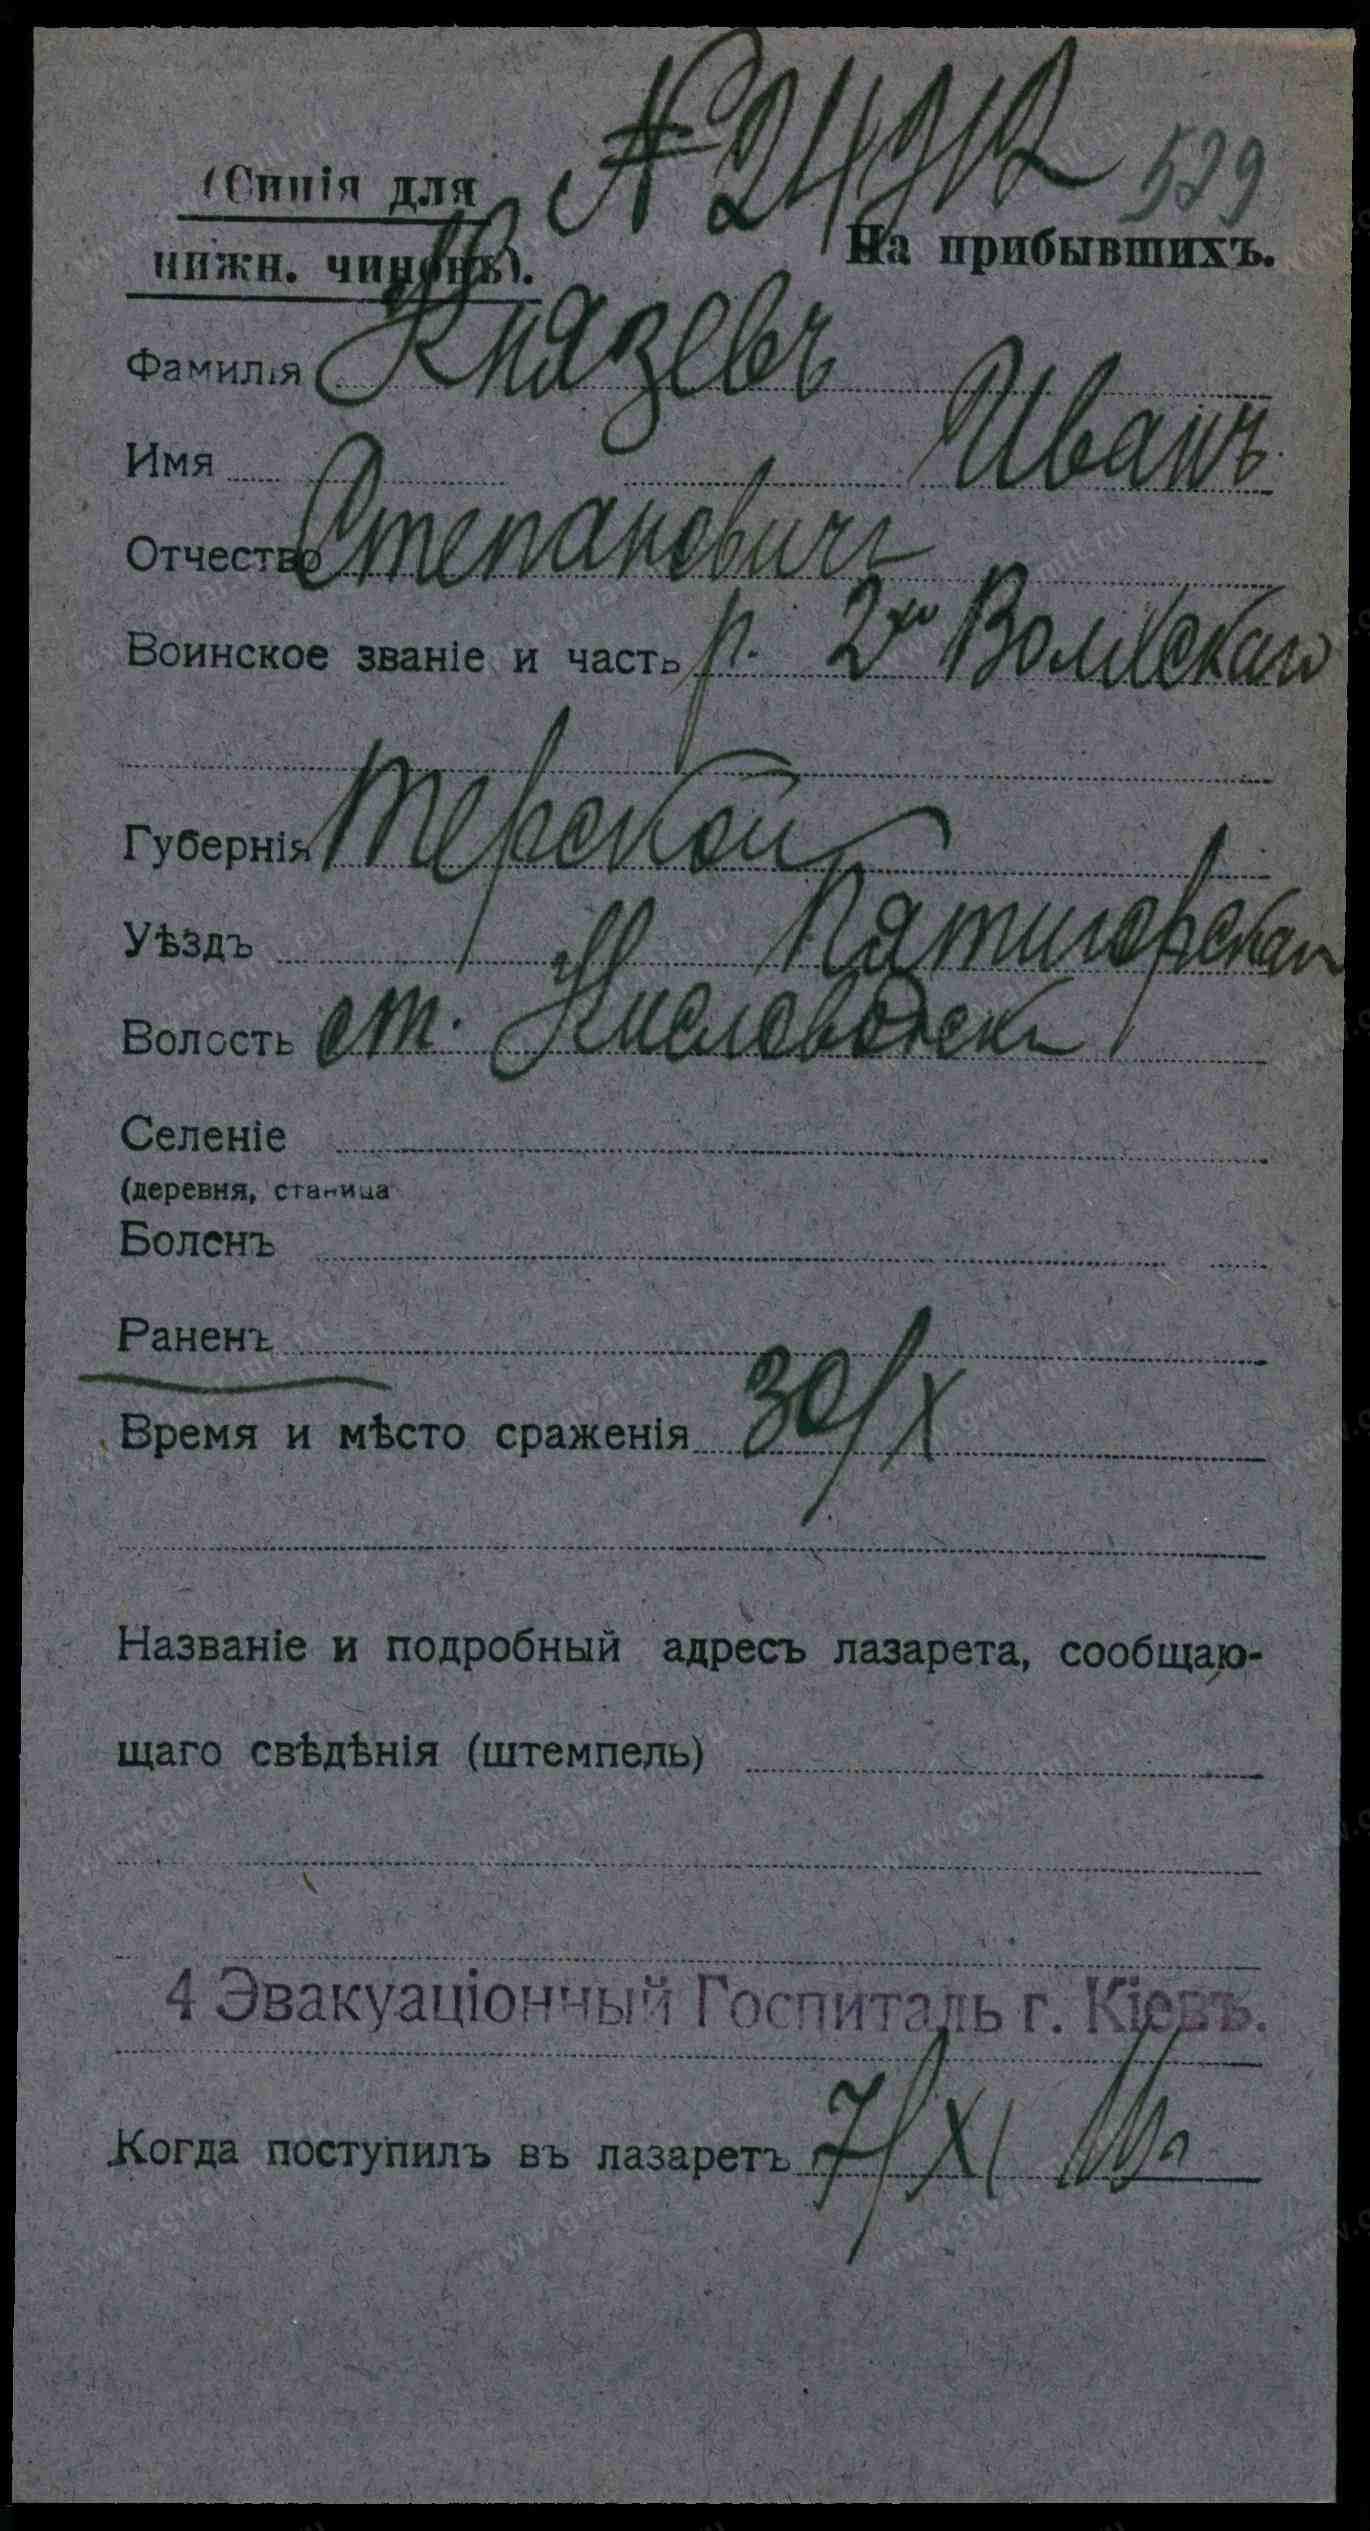 № 24912 529
(Синія для
нижн. чиновъ). На прибывшихъ.
Фамилія Князевъ
Имя Иванъ
Отчество Степановичъ
Воинское званіе и часть р. 2го Волжскаго
Губернія Терской
Уѣздъ Пятигорскаго
Волость ст. Кисловодск
Селеніе
(деревня, станица
Боленъ
Раненъ
Время и мѣсто сраженія 30/X
Названіе и подробный адресъ лазарета, сообщаю-
щаго свѣдѣнія (штемпель)
4 Эвакуаціонный Госпиталь г. Кіевъ.
Когда поступилъ въ лазаретъ 7/XI